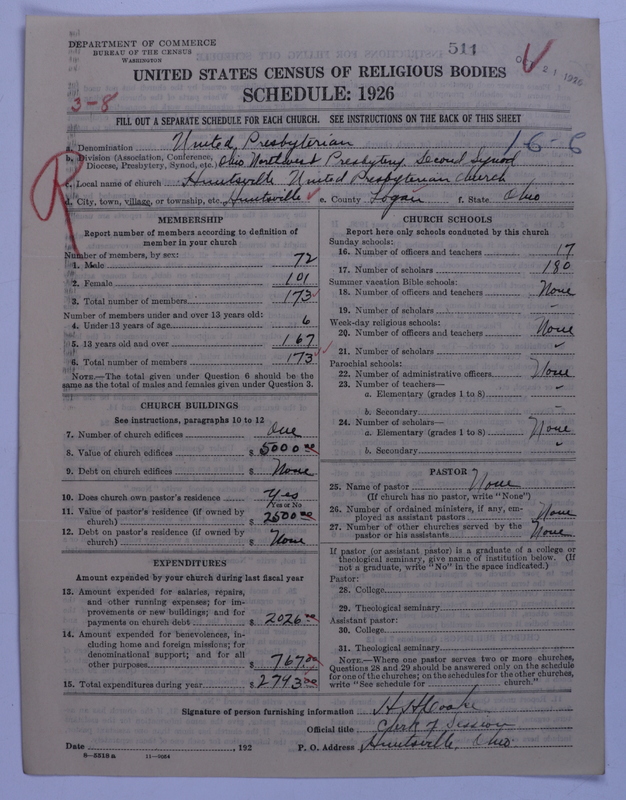 DEPARTMENT OF COMMERCE
BUREAU OF THE CENSUS
WASHINGTON
511
OCT 21 1926
UNITED STATES CENSUS OF RELIGIOUS BODIES
SCHEDULE: 1926
3-8
FILL OUT A SEPARATE SCHEDULE FOR EACH CHURCH. SEE INSTRUCTIONS ON THE BACK OF THIS SHEET
16-6
R
a. Denomination United Presbyterian
b. Division (Association, Conference, Diocese, Presbytery, Synod, etc.) Ohio Northwest Presbytery, Second Synod
c. Local name of church Huntsville United Presbyterian Church
d. City, town, village, or township, etc. Huntsville e. County Logan f. State Ohio
MEMBERSHIP
Report number of members according to definition of
member in your church
Number of members, by sex:
1. Male 72
2. Female 101
3. Total number of members 173
Number of members under and over 13 years old:
4. Under 13 years of age 6
5. 13 years old and over 167
6. Total number of members 173
NOTE.—The total given under Question 6 should be the
same as the total of males and females given under Question 3.
CHURCH BUILDINGS
See instructions, paragraphs 10 to 12
7. Number of church edifices One
8. Value of church edifices $ 5000 00
9. Debt on church edifices $ None
10. Does church own pastor's residence Yes
Yes or No
11. Value of pastor's residence (if owned by
church) $ 2500 00
12. Debt on pastor's residence (if owned by
church) $ None
EXPENDITURES
Amount expended by your church during last fiscal year
13. Amount expended for salaries, repairs,
and other running expenses; for im-
provements or new buildings; and for
payments on church debt $ 2026 00
14. Amount expended for benevolences, in-
cluding home and foreign missions; for
denominational support; and for all
other purposes $ 767.00
15. Total expenditures during year $ 2793 00
CHURCH SCHOOLS
Report here only schools conducted by this church
Sunday schools:
16. Number of officers and teachers 17
17. Number of scholars 180
Summer vacation Bible schools:
18. Number of officers and teachers None
19. Number of scholars "
Week-day religious schools:
20. Number of officers and teachers None
21. Number of scholars "
Parochial schools:
22. Number of administrative officers None
23. Number of teachers—
a. Elementary (grades 1 to 8) "
b. Secondary "
24. Number of scholars—
a. Elementary (grades 1 to 8) None
b. Secondary "
PASTOR
25. Name of pastor None
(If church has no pastor, write "None")
26. Number of ordained ministers, if any, em-
ployed as assistant pastors None
27. Number of other churches served by the
pastor or his assistants None
If pastor (or assistant pastor) is a graduate of a college or
theological seminary, give name of institution below. (If
not a graduate, write "No" in the space indicated.)
Pastor:
28. College
29. Theological seminary
Assistant pastor:
30. College
31. Theological seminary
NOTE.—Where one pastor serves two or more churches,
Questions 28 and 29 should be answered only on the schedule
for one of the churches; on the schedules for the other churches,
write "See schedule for church."
Signature of person furnishing information H. H. Cooke
Official title Clerk of Session
Date , 192 P. O. Address Huntsville, Ohio
8—5518a 11—9064